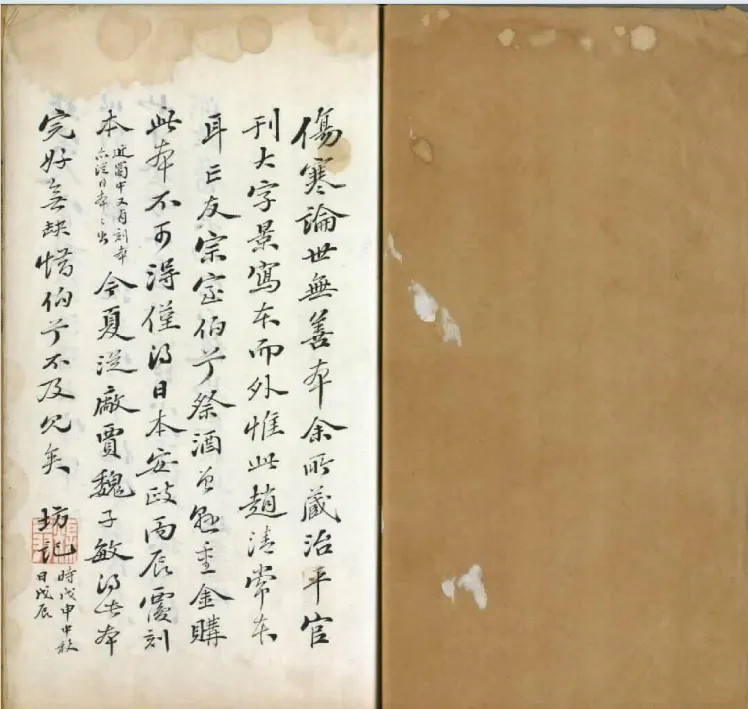 傷寒論世無善本余所藏治平官
刊大字景寫本而外惟此趙清常本
耳亡友宗室伯兮祭酒曾懸重金購
此本不可得僅得日本安政丙辰覆刻
本近蜀中又有刻本
亦從日本本出
今夏從廠賈魏子敏得此本
完好無缺惜伯兮不及見矣
坊記
時戊申中秋
日戊辰